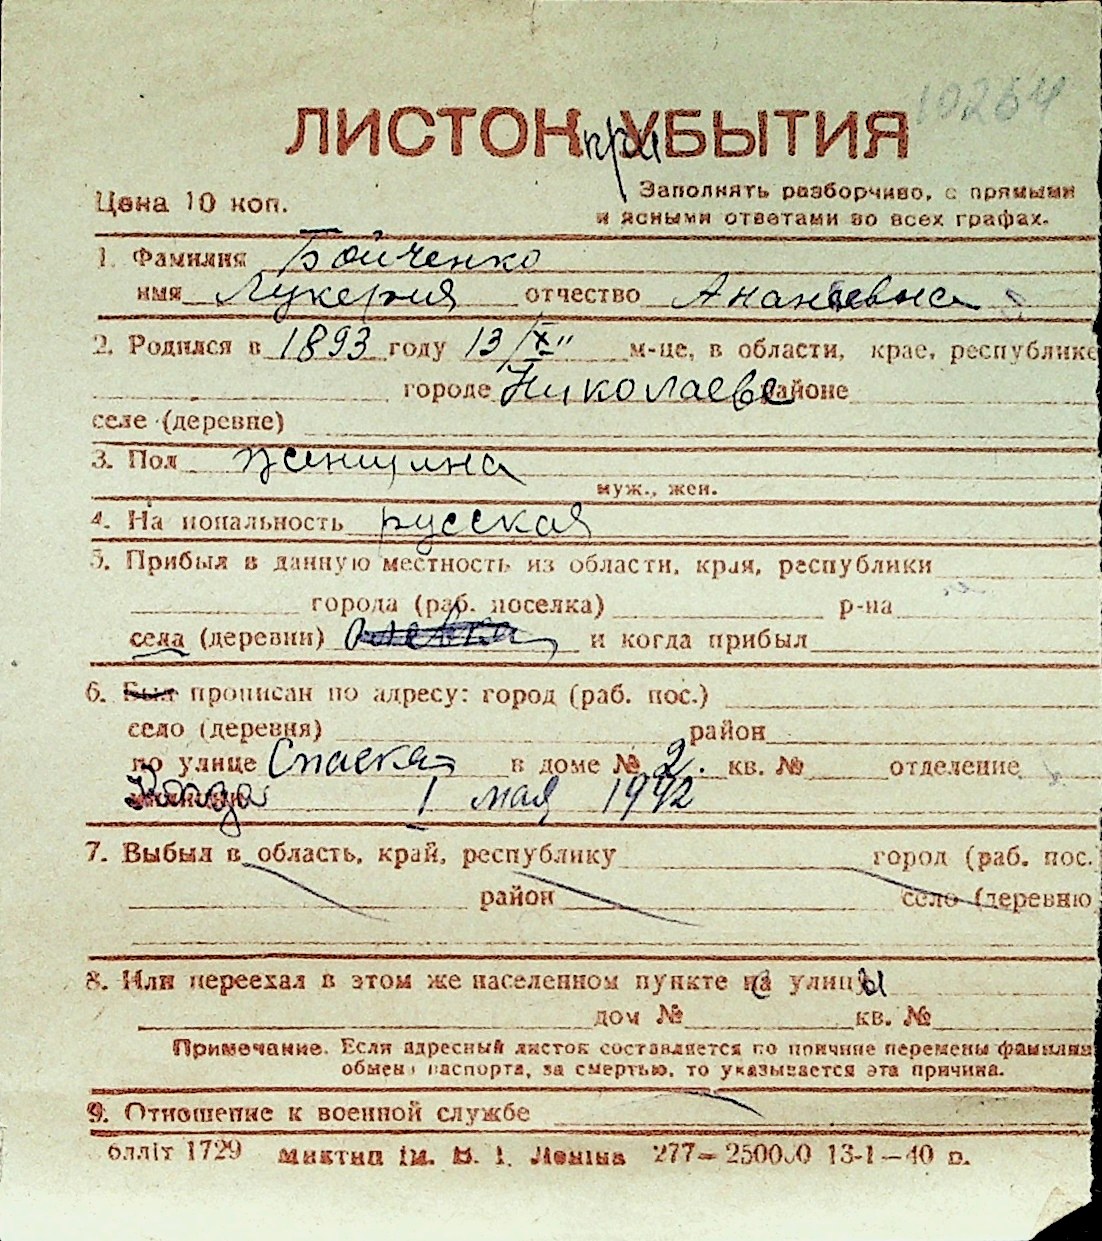 10264
ЛИСТОК при УБЫТИЯ
Цена 10 коп. Заполнять разборчиво, с прямыми
и ясными ответами во всех графах.
1. Фамилия Бойченко
имя Лукерия отчество Ананьевна
2. Родился в 1893 году 13/X" м-це, в области, крае, республике
городе Николаеве районе
селе (деревне)
3. Пол женщина
муж., жен.
4. Национальность русская
5. Прибыл в данную местность из области, края, республики
города (раб. поселка) р-на
села (деревни) и когда прибыл
6. Был прописан по адресу: город (раб. пос.)
село (деревня) район
по улице Спаская в доме № 2. кв. № отделение
Когда 1 мая 1942
7. Выбыл в область, край, республику город (раб. пос.
район село (деревню
8. Или переехал в этом же населенном пункте с улицы
дом № кв. №
Примечание. Если адресный листок составляется по причине перемены фамилии
обмена паспорта, за смертью, то указывается эта причина.
9. Отношение к военной службе
блліт 1729 ім. В. І. Леніна 277—250000 13-1—40 р.